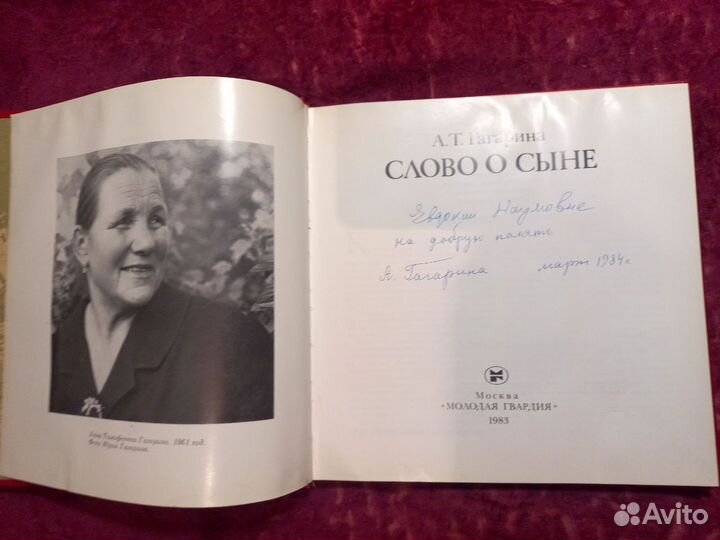 Анна Тимофеевна Гагарина. 1961 год.
Фото Юрия Гагарина.
А. Т. Гагарина
СЛОВО О СЫНЕ
Наумовне
на добрую память
А. Гагарина март 1984 г.
Москва
«МОЛОДАЯ ГВАРДИЯ»
1983
Avito